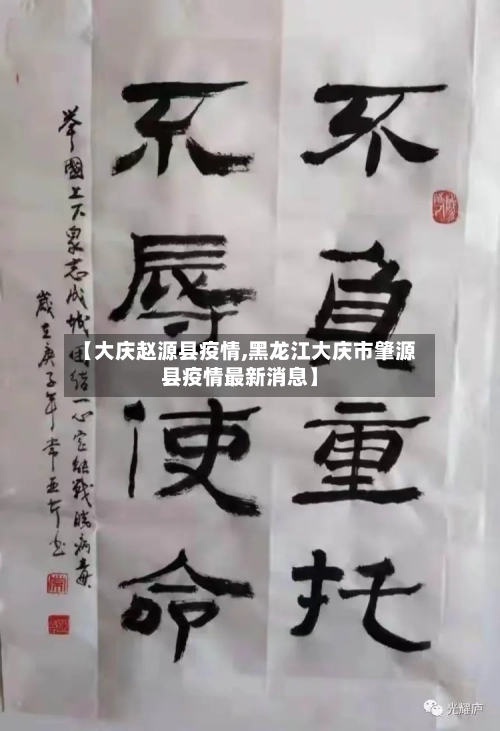 不负重托
不辱使命
举國上下众志成城团结一心定能战胜病毒
歲在庚子年常亚
【大庆赵源县疫情,黑龙江大庆市肇源
县疫情最新消息】
光耀庐